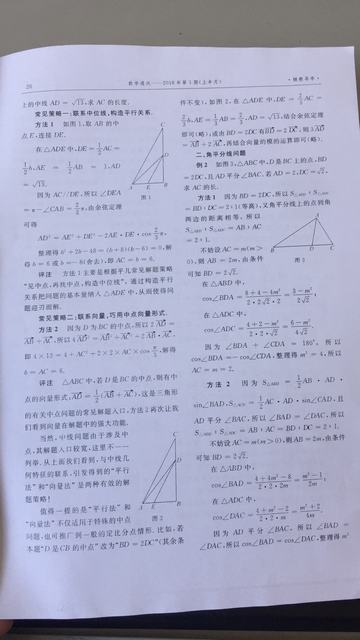 28
数学通讯——2018年第1期(上半月)
·辅教导学·
上的中线 AD = √13,求 AC 的长度.
常见策略一:联系中位线,构造平行关系.
方法1 如图1,取 AB 的中
点 E,连接 DE.
在△ADE 中,DE = 1/2 AC =
1/2 b,AE = 1/2 AB = 1,AD
= √13.
因为 AC // DE,所以 ∠DEA
= π − ∠CAB = 2/3 π,由余弦定理
可得
C
D
A E B
图1
AD² = AE² + DE² − 2AE · DE · cos 2/3 π,
整理得 b² + 2b − 48 = (b+8)(b−6) = 0,解
得 b = 6 或 b = −8(舍去),即 AC = b = 6.
评注 方法1主要是根据平几常见解题策略
“见中点,再找中点,构造中位线”,通过构造平行
关系把问题的基本量纳入△ADE 中,从而使得问
题迎刃而解.
常见策略二:联系向量,巧用中点向量形式.
方法2 因为 D 为 BC 的中点,所以 2AD =
AB + AC,所以 4AD² = AB² + AC² + 2AB · AC,
即 4×13 = 4 + AC² + 2×2×AC×cos π/3,解得
b = AC = 6.
评注 △ABC 中,若 D 是 BC 的中点,则有中
点的向量形式,AD = 1/2 (AB + AC),这是三角形
的有关中点问题的常见解题入口,方法2再次让我
们看到向量在解题中的强大功能.
当然,中线问题由于涉及中
点,其解题入口较宽,这里不一一
列举.从上面我们看到,与中线几
何特征的联系,引发得到的“平行
法”和“向量法”是两种有效的解
题策略!
值得一提的是“平行法”和
“向量法”不仅适用于特殊的中点
问题,也可推广到一般的定比分点情形.比如,若
本题“D 是 CB 的中点”改为“BD = 2DC”(其余条
C
D
A E B
图2
件不变),如图2,在△ADE 中,DE = 2/3 AC =
2/3 b,AE = 1/3 AB = 2/3,AD = √13,结合余弦定理
即可(略);或由 BD = 2DC 有 BD = 2DC,则 3AD
= AB + 2AC,再结合向量的模的运算即可(略).
二、角平分线问题
例2 如图3,△ABC 中,D 是 BC 上的点,BD
= 2DC,且 AD 平分∠BAC,若 AD = 2,DC = √2,
求 AC 的长.
方法1 因为 BD = 2DC,所以 S△ABD : S△ADC
= BD : DC = 2 : 1(等高),又角平分线上的点到角
两边的距离相等,所以
S△ABD : S△ADC = AB : AC
= 2 : 1.
不妨设 AC = m(m >
0),则 AB = 2m,由条件
可知 BD = 2√2.
A
B D C
图3
在△ABD 中,
cos∠BDA = (8+4−4m²)/(2·2√2·2) = (3−m²)/(2√2);
在△ADC 中,
cos∠ADC = (4+2−m²)/(2·2·√2) = (6−m²)/(4√2).
因为 ∠BDA + ∠CDA = 180°,所以
cos∠BDA = −cos∠CDA,整理得 m² = 4,所以
AC = m = 2.
方法2 因为 S△ABD = 1/2 AB · AD ·
sin∠BAD,S△ADC = 1/2 AC · AD · sin∠CAD,且
AD 平分∠BAC,所以∠BAD = ∠DAC,所以
S△ABD : S△ADC = AB : AC = BD : DC = 2 : 1.
不妨设 AC = m(m > 0),则 AB = 2m,由条件
可知 BD = 2√2.
在△ABD 中,
cos∠BAD = (4+4m²−8)/(2·2·2m) = (m²−1)/(2m);
在△ADC 中,
cos∠DAC = (4+m²−2)/(2·2·m) = (m²+2)/(4m).
因为 AD 平分∠BAC,所以 ∠BAD =
∠DAC,所以 cos∠BAD = cos∠DAC,整理得 m²